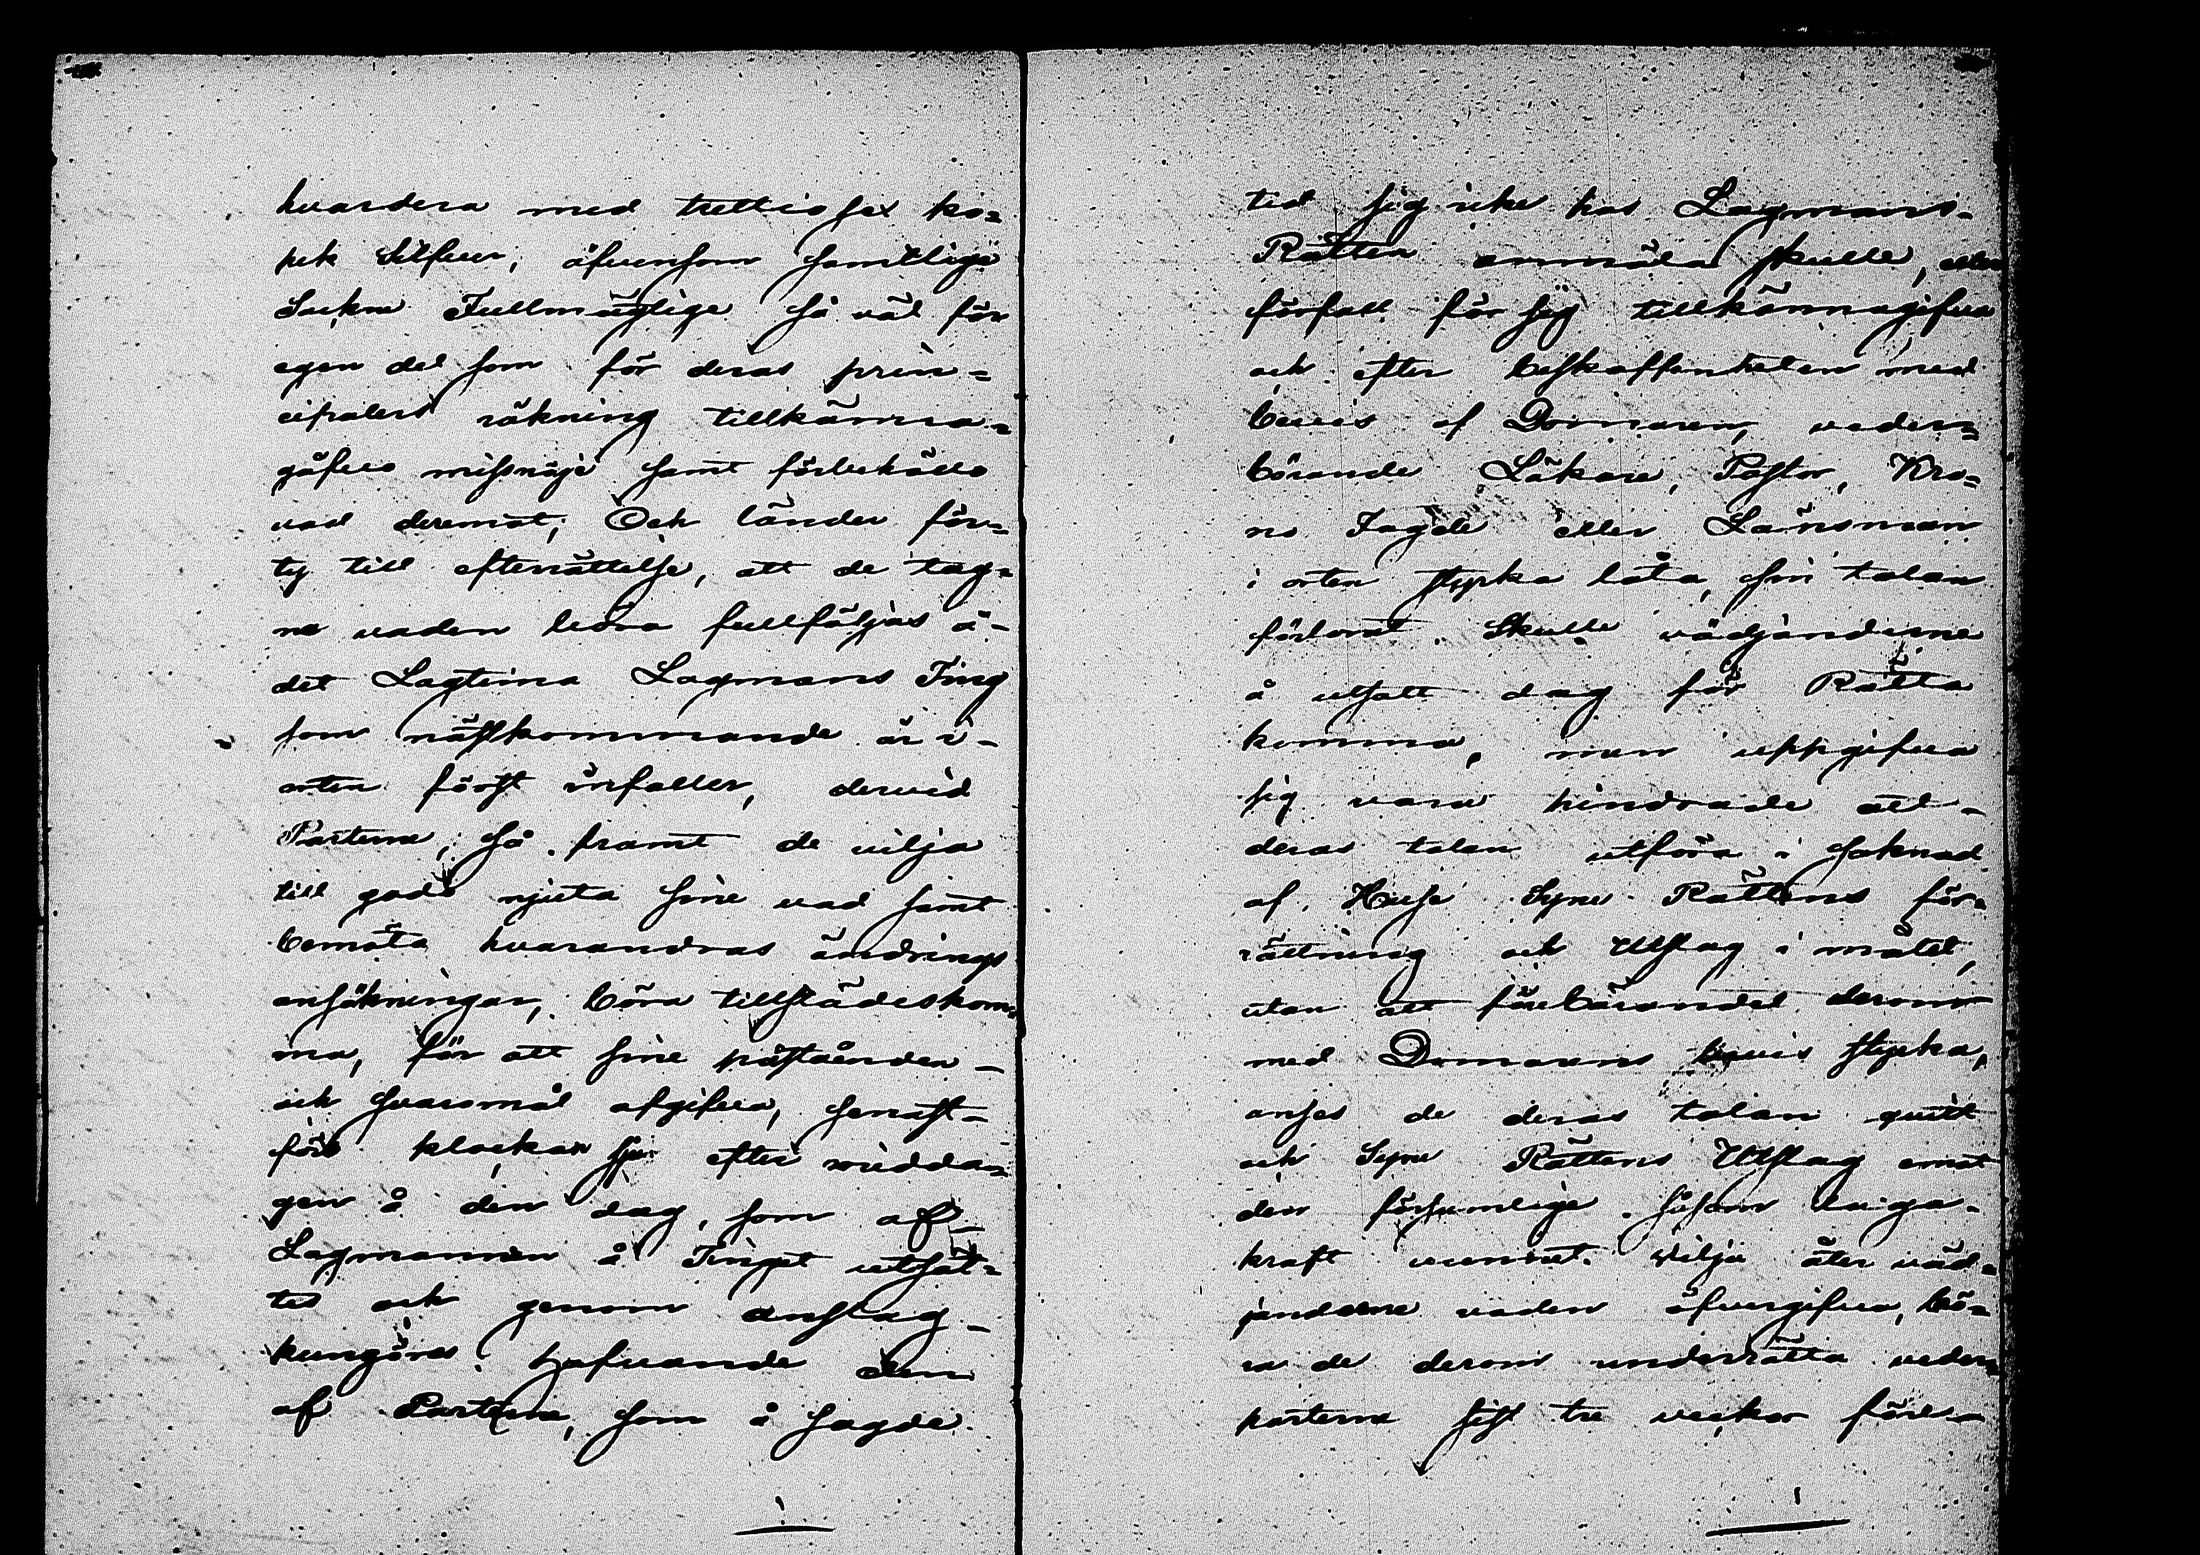 hvardera med trettiosex ko-
pek Silfver, äfvensom samtlige
Sockne Fullmägtige så väl för
egen del som för deras prin-
cipalers räkning tillkänna-
gåfvo missnöje samt förbehöllo
vad deremot; Och länder för-
ty till efterrättelse, att de tag-
ne vaden böra fullföljas å
det Lagtima Lagmans Ting
som nästkommande år i
orten först infaller, dervid
Parterne, så framt de vilja
till godo njuta sine vad samt
bemöta hvarandras ändrings
ansökningar, böra tillstädeskom-
ma, för att sine påståenden
och svaromål afgifva, senast
före klockan sju efter midda-
gen å den dag, som af
Lagmannen å Tinget utsät-
tes och genom anslag
kungöres. hafvande den
af Parterne, som å sagde
tid sig icke hos Lagmans-
Rätten anmäla skulle, eller
förfall för sig tillkännagifva
och efter beskaffenheten med
bevis af Domaren, veder-
börande Läkare, Pastor, Kro-
no Fogde eller Länsman
i orten styrka låta, sin talan
förlorat. Skulle vädjanderne
å utsatt dag för Rätta
komma, men uppgifva
sig vara hindrade att
deras talan utföra i saknad
af Huse Syne Rättens för-
rättning och Utslag i målet,
utan att förebärandet derom
med Domarens bevis styrka,
anses de deras talan qvitt
och Syne Rättens Utslag emot
den försumlige såsom laga
kraft vunnet. Vilja åter väd-
janderne vaden öfvergifva, bö-
ra de derom underrätta veder-
parterne sist tre veckor före